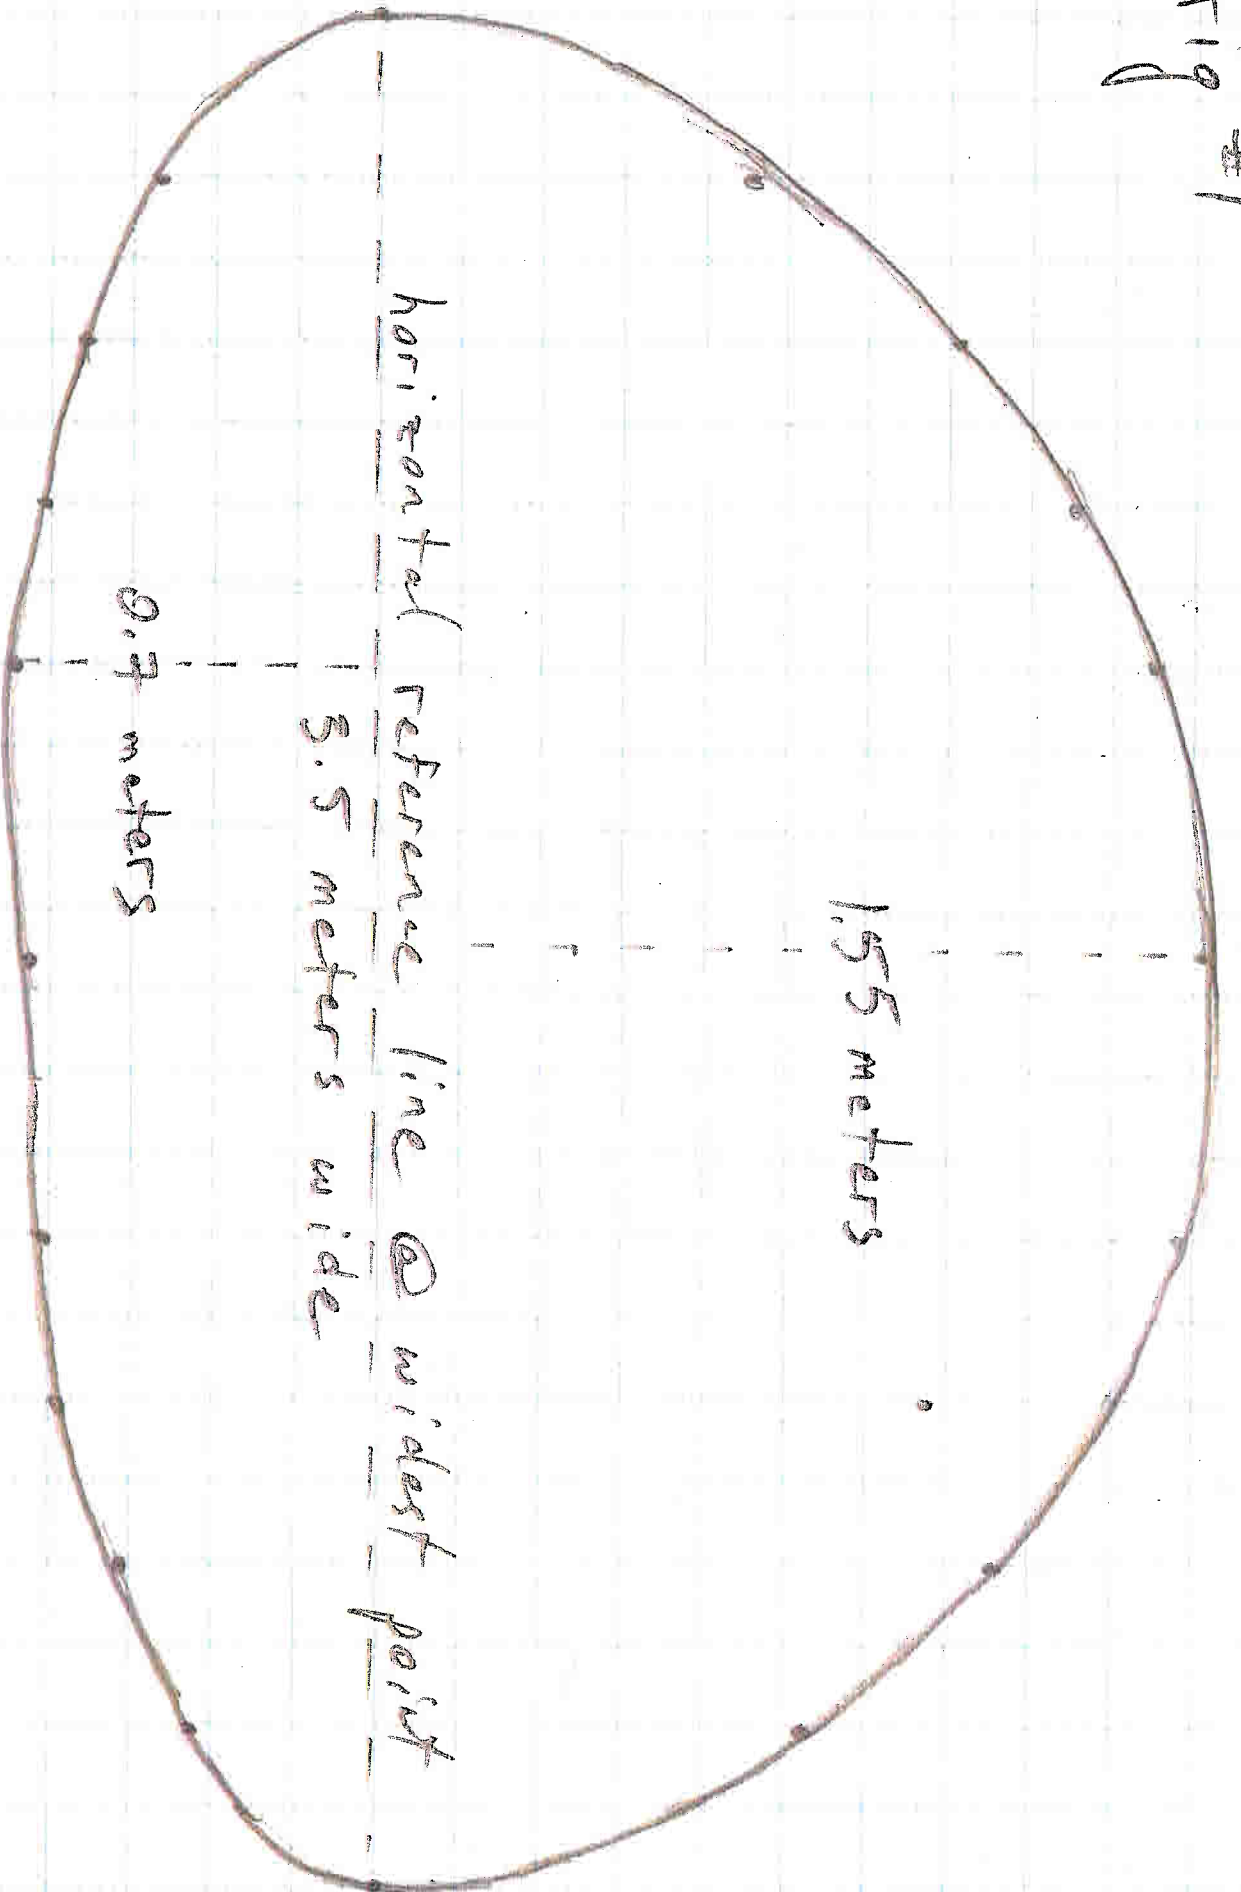 Fig #1
1.55 meters
horizontal reference line @ widest point
3.5 meters wide
0.7 meters